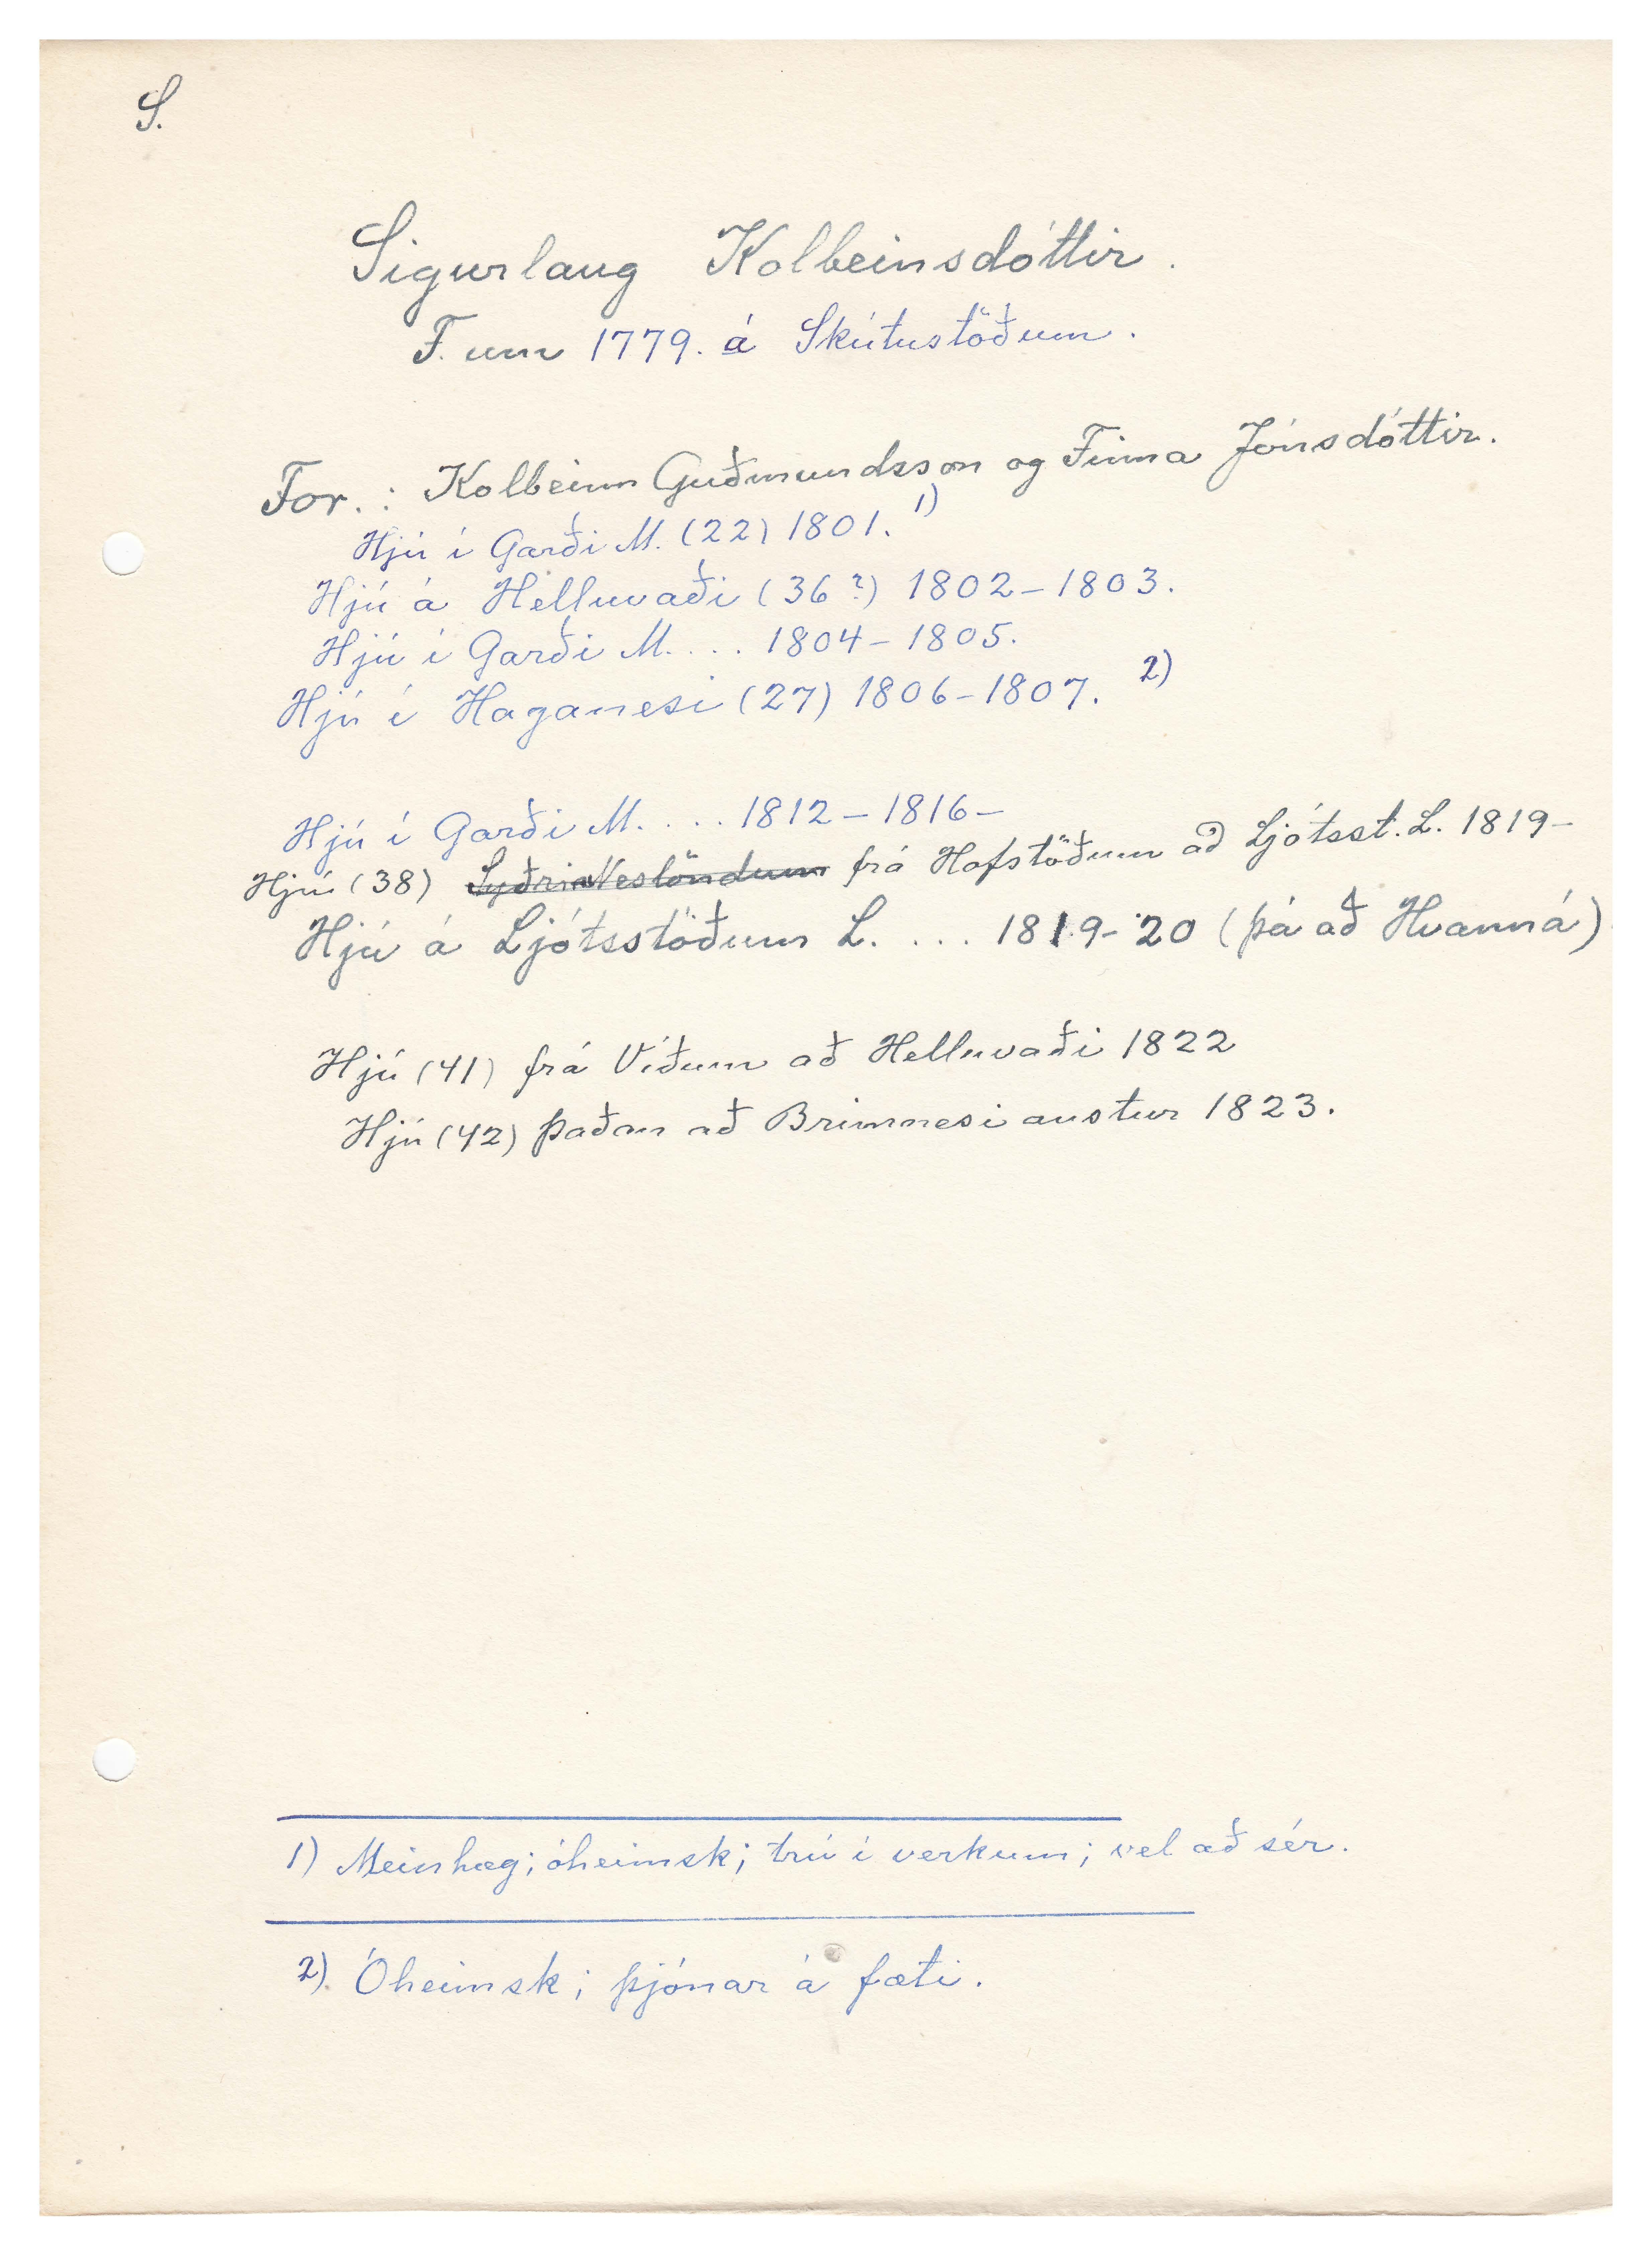 S.
Sigurlaug Kolbeinsdóttir.
F. um 1779. á Skútustöðum.
For.: Kolbeinn Guðmundsson og Finna Jónsdóttir.
Hjú í Garði M. (22) 1801. 1)
Hjú á Helluvaði (36?) 1802-1803.
Hjú í Garði M. ... 1804-1805.
Hjú í Haganesi (27) 1806-1807. 2)
Hjú í Garði M. ... 1812-1816-
Hjú (38) Syðri Neslöndum frá Hofstöðum að Ljótsst. L. 1819-
Hjú á Ljótsstöðum L. ... 1819-20 (þá að Hvanná)
Hjú (41) frá Víðum að Helluvaði 1822
Hjú (42) þaðan að Brimnesi austur 1823.
1) Meinhæg; óheimsk; trú í verkum; vel að sér.
2) Óheimsk; þjónar á fæti.